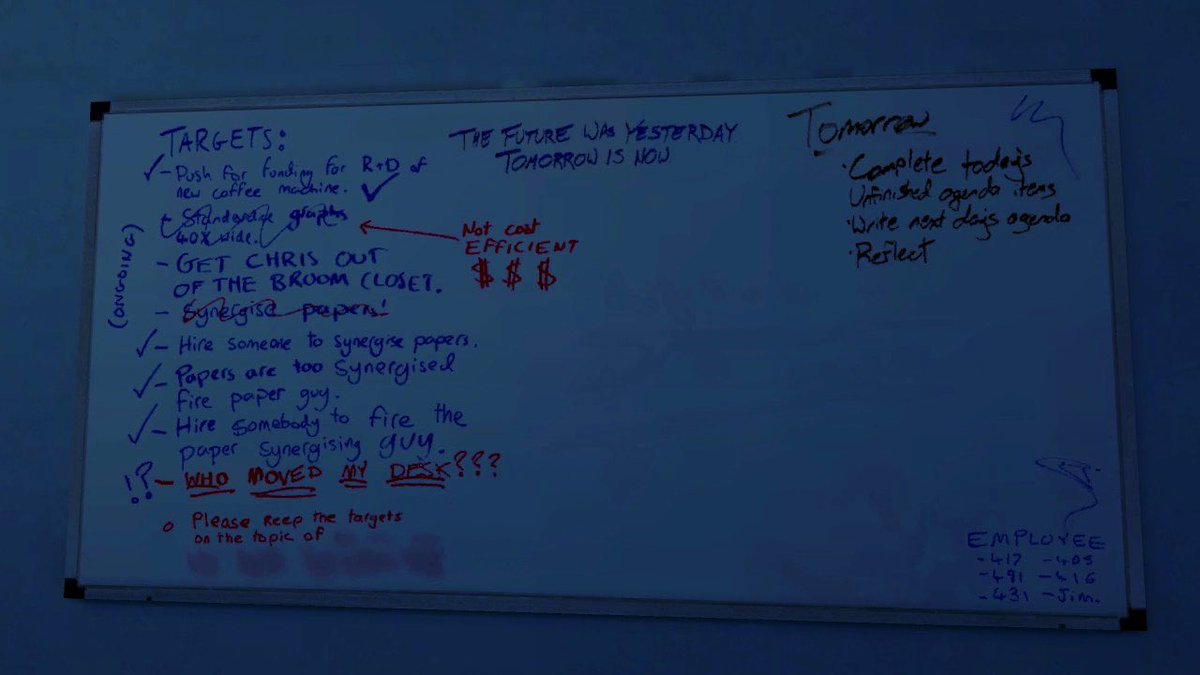 TARGETS:
✓ – Push for funding for R+D of
new coffee machine. ✓
– Standardise graphs
40% wide.
Not cost
EFFICIENT
$ $ $
(ONGOING)
– GET CHRIS OUT
OF THE BROOM CLOSET.
– Synergise papers!
✓ – Hire someone to synergise papers.
✓ – Papers are too synergised
fire paper guy.
✓ – Hire somebody to fire the
paper synergising guy.
!? – WHO MOVED MY DESK???
o Please keep the targets
on the topic of
THE FUTURE WAS YESTERDAY
TOMORROW IS NOW
Tomorrow
· Complete today's
Unfinished agenda items
· Write next days agenda
· Reflect
EMPLOYEE
- 417 - 405
- 491 - 416
- 431 - Jim.